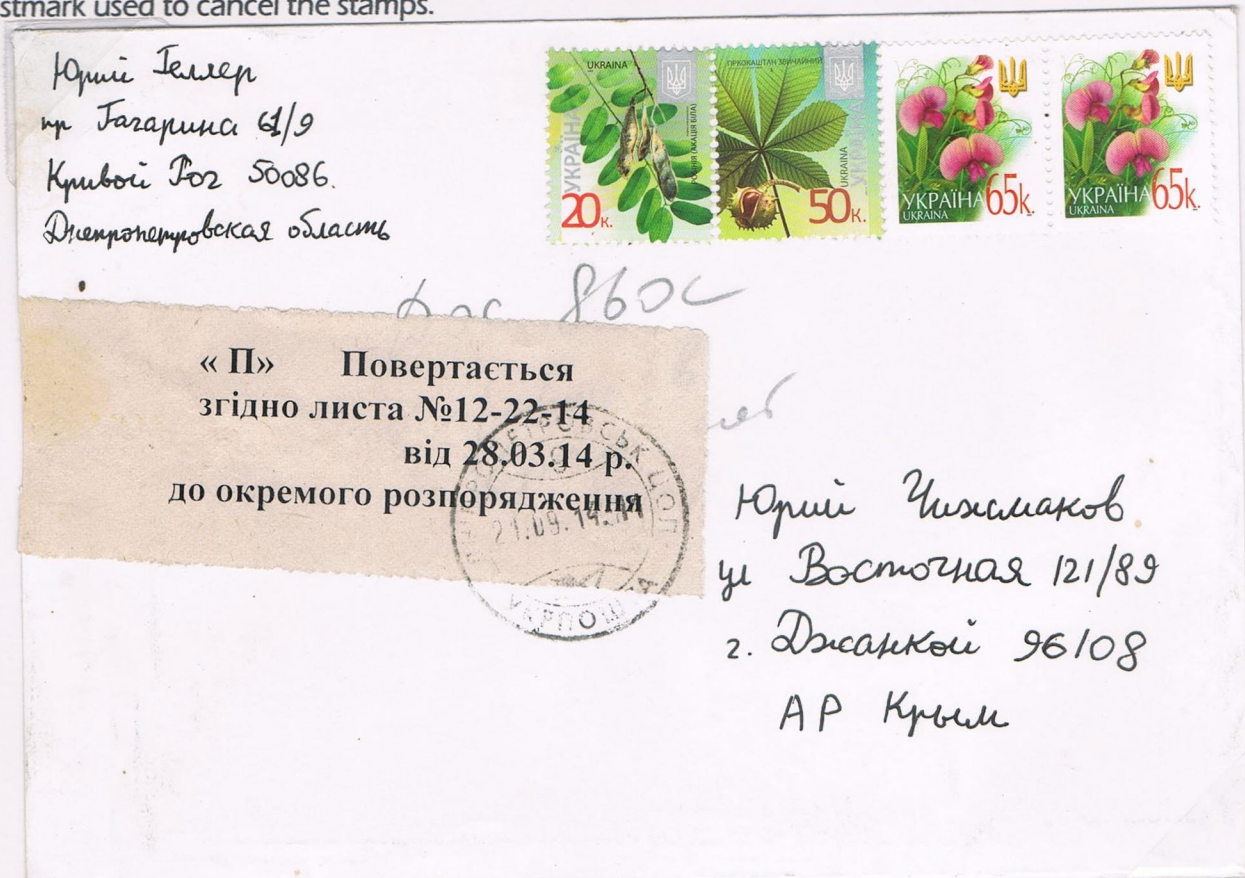 stmark used to cancel the stamps.
Юрий Геллер
пр Гагарина 61/9
Кривой Рог 50086.
Днепропетровская область
UKRAINA
УКРАЇНА
(АКАЦІЯ БІЛА)
20к.
ГІРКОКАШТАН ЗВИЧАЙНИЙ
УКРАЇНА
UKRAINA
50к.
УКРАЇНА 65к.
UKRAINA
УКРАЇНА 65к.
UKRAINA
« П» Повертається
згідно листа №12-22-14
від 28.03.14 р.
до окремого розпорядження
ПЕТРОВСЬК ЦОП
21.09.14
УКРПОШ
Юрий Чижмаков
ул Восточная 121/89
г. Джанкой 96108
АР Крым